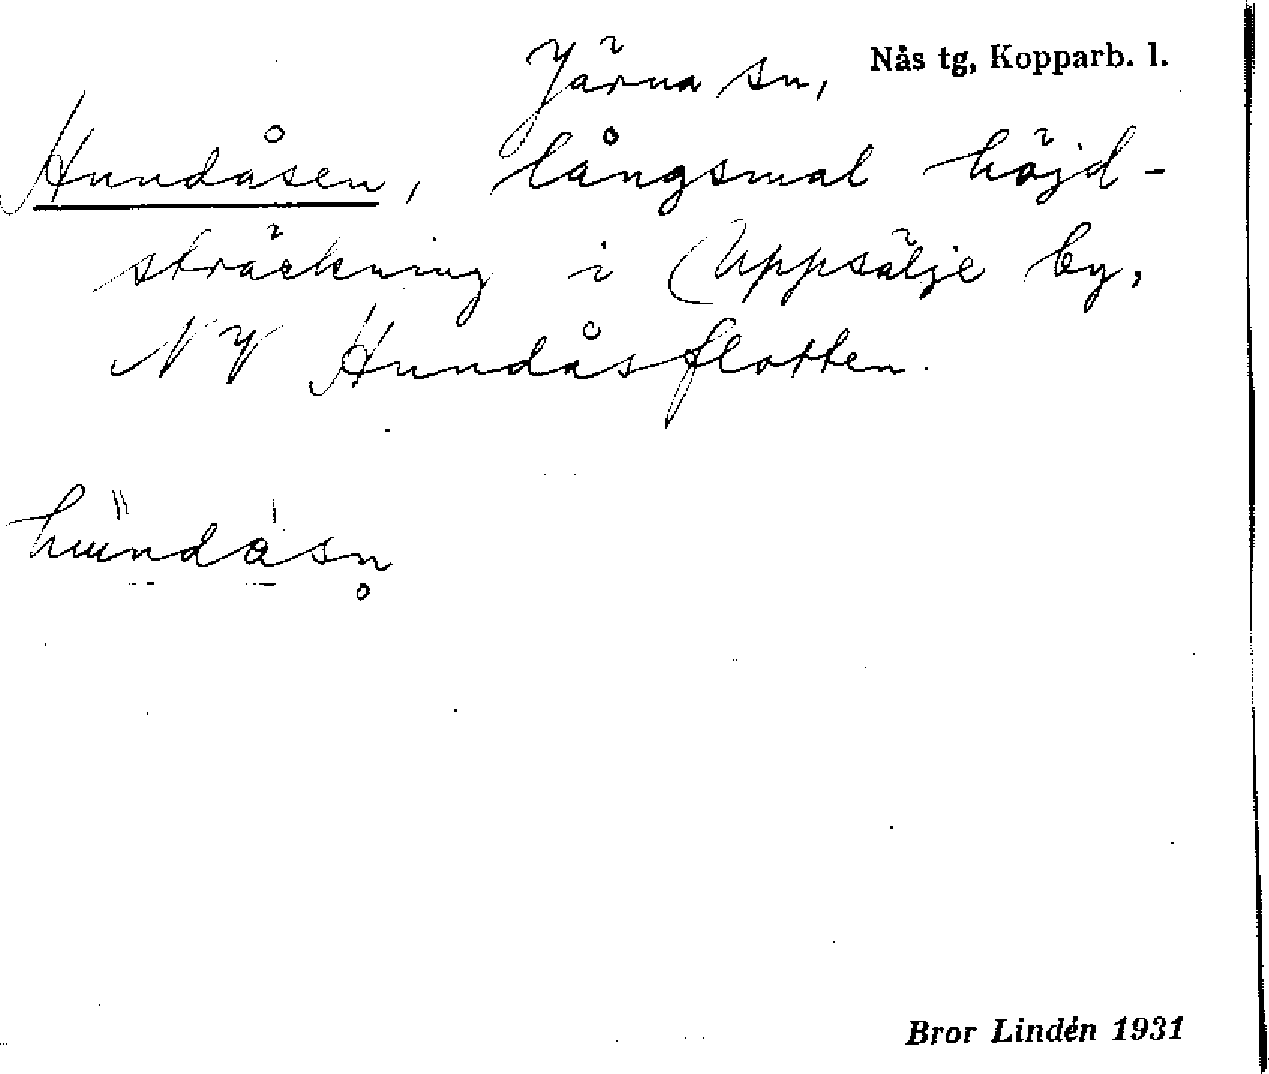 Järna sn, Nås tg, Kopparb. l.
Hundåsen, långsmal höjd-
sträckning i Uppsälje by,
NV Hundåsflotten.
hundåsn
Bror Lindén 1931